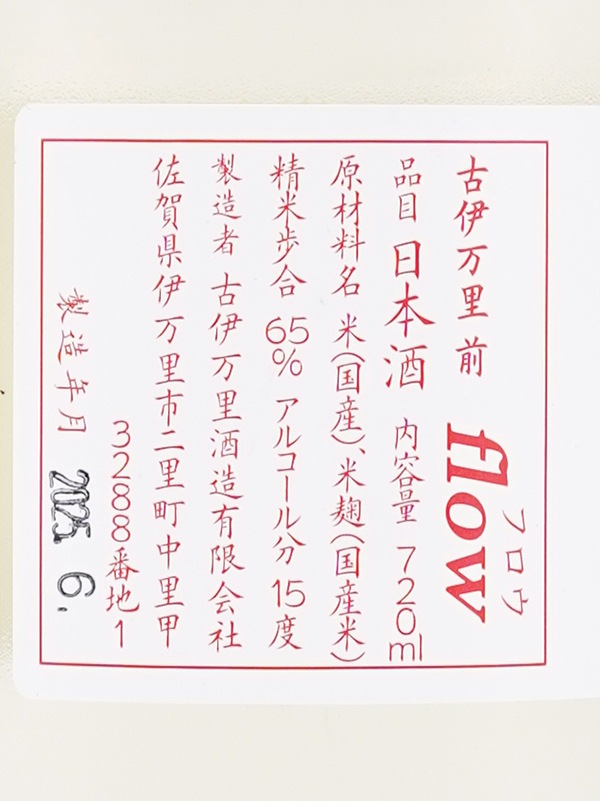 古伊万里 前 flow
フロウ
品目 日本酒 内容量 720ml
原材料名 米(国産)、米麹(国産米)
精米歩合 65% アルコール分 15度
製造者 古伊万里酒造有限会社
佐賀県伊万里市二里町中里甲
3288番地1
製造年月 2025. 6.